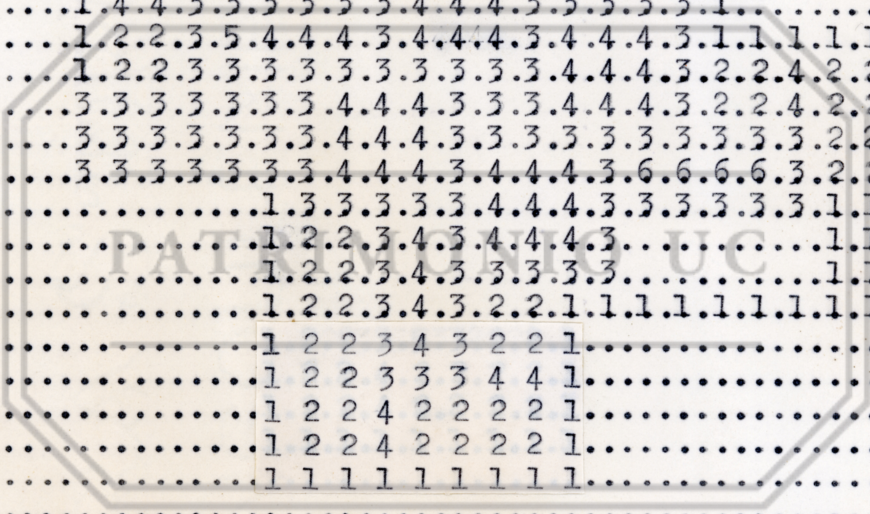 ....1.2.2.3.5.4.4.4.3.4.4.4.3.4.4.4.3.1.1.1.1.
....1.2.2.3.3.3.3.3.3.3.3.3.3.4.4.4.3.2.2.4.2
....3.3.3.3.3.3.3.4.4.4.3.3.3.4.4.4.3.2.2.4.2
....3.3.3.3.3.3.3.4.4.4.3.3.3.3.3.3.3.3.3.3.2.
....3.3.3.3.3.3.3.4.4.4.3.4.4.4.3.6.6.6.6.3.2
..............1.3.3.3.3.3.4.4.4.3.3.3.3.3.3.1.
..............1.2.2.3.4.3.4.4.4.3...........1.
PATRIMONIO UC
..............1.2.2.3.4.3.3.3.3.3...........1
..............1.2.2.3.4.3.2.2.1.1.1.1.1.1.1.1.
..............1 2 2 3 4 3 2 2 1...............
..............1 2 2 3 3 3 4 4 1...............
..............1 2 2 4 2 2 2 2 1...............
..............1 2 2 4 2 2 2 2 1...............
..............1 1 1 1 1 1 1 1 1...............